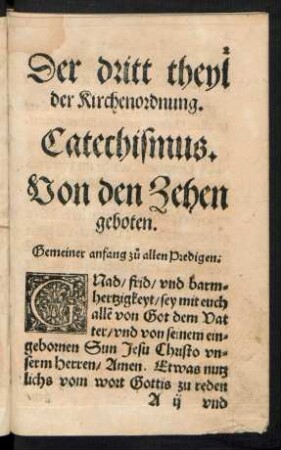 2
Der dritt theyl
der Kirchenordnung.
Catechismus.
Von den Zehen
geboten.
Gemeiner anfang zů allen Predigen:
GNad/ frid/ vnd barm-
hertzigkeyt/ sey mit euch
allẽ von Got dem Vat
ter/ vnd von seinem ein-
gebornen Sun Jesu Christo vn-
serm Herren/ Amen. Etwas nutz
lichs vom wort Gottis zu reden
A ij vnd